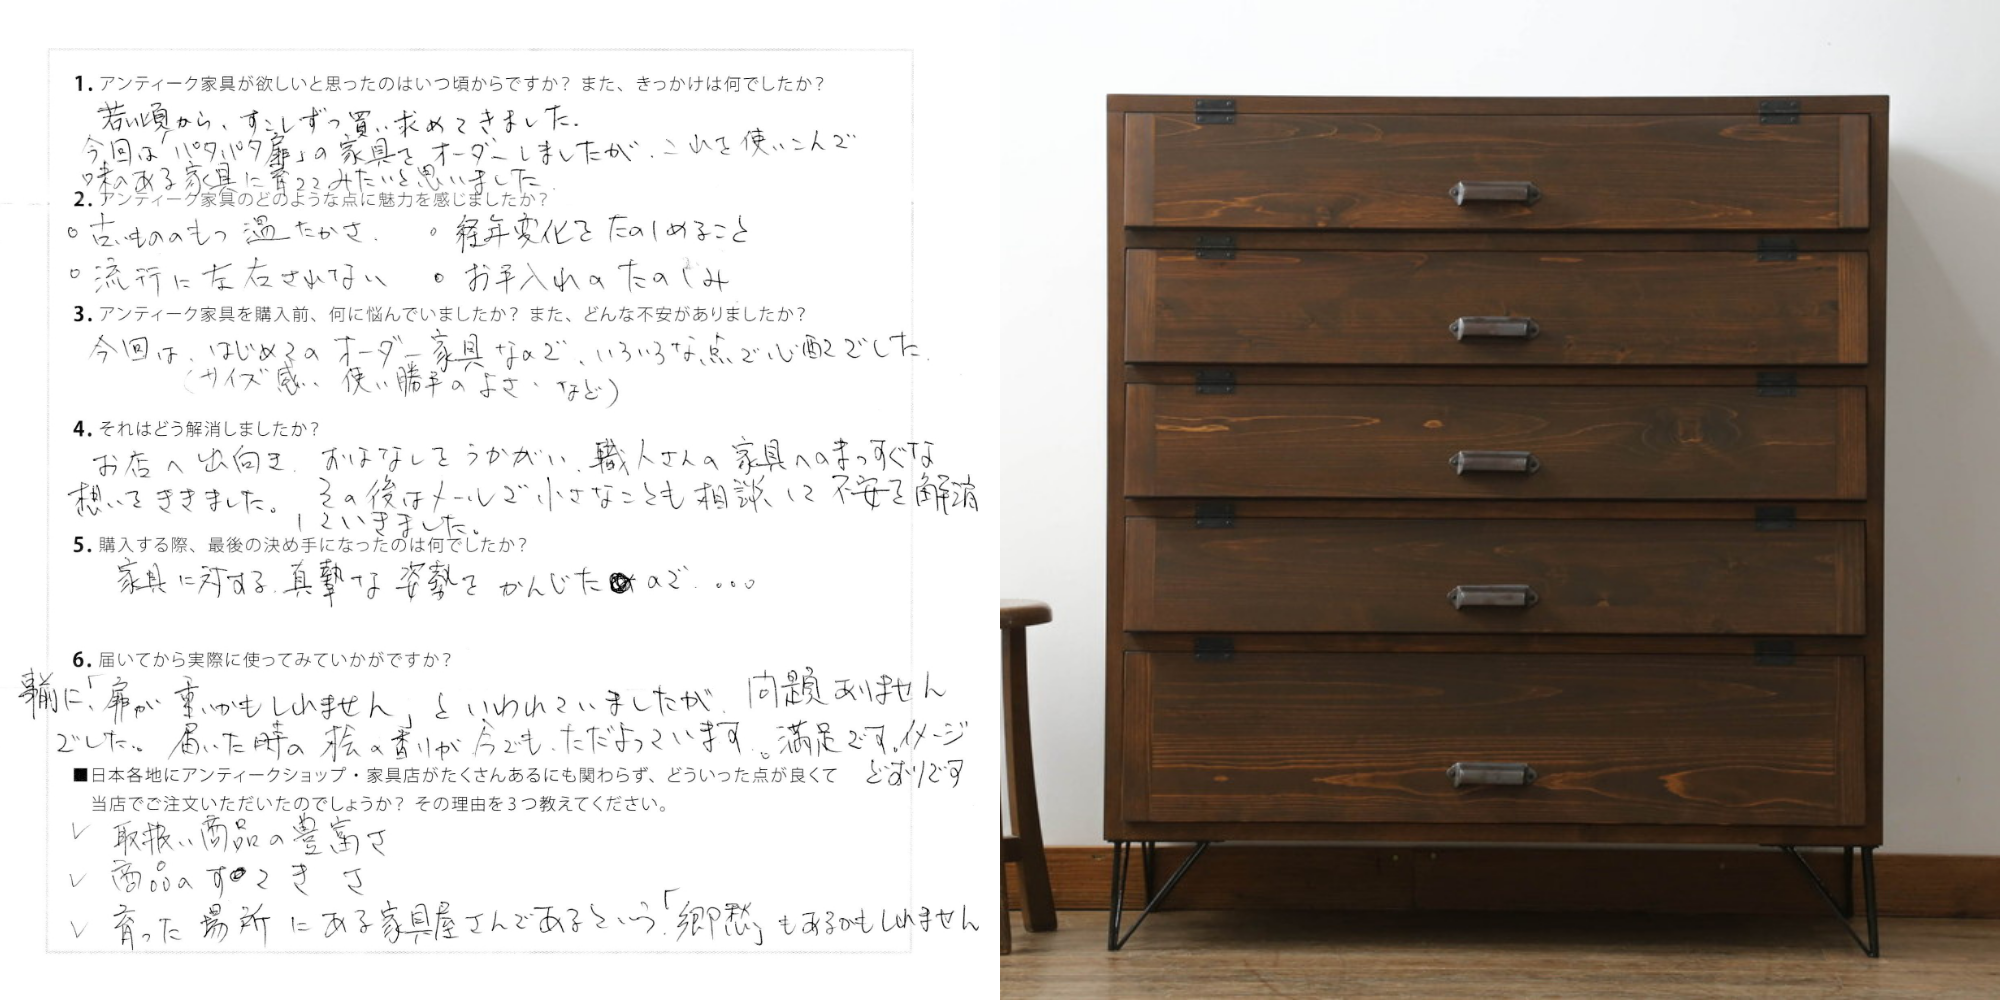 1. アンティーク家具が欲しいと思ったのはいつ頃からですか? また、きっかけは何でしたか?
若い頃から、すこしずつ買い求めてきました.
今回は「パタパタ扉」の家具をオーダーしましたが、これを使いこんで
味のある家具に育ててみたいと思いました
2. アンティーク家具のどのような点に魅力を感じましたか?
○古いもののもつ温たかさ. ○経年変化をたのしめること
○流行に左右されない ○お手入れのたのしみ
3. アンティーク家具を購入前、何に悩んでいましたか? また、どんな不安がありましたか?
今回は、はじめてのオーダー家具なので、いろいろな点で心配でした.
(サイズ感、使い勝手のよさ、など)
4. それはどう解消しましたか?
お店へ出向き、おはなしをうかがい、職人さんの家具へのまっすぐな
想いをききました。その後はメールで小さなことも相談して不安を解消
していきました。
5. 購入する際、最後の決め手になったのは何でしたか?
家具に対する真摯な姿勢をかんじたので...。
6. 届いてから実際に使ってみていかがですか?
事前に、「扉が重いかもしれません」といわれていましたが、問題ありません
でした。届いた時の桧の香りが今でも、ただよっています。満足です。イメージ
どおりです
■日本各地にアンティークショップ・家具店がたくさんあるにも関わらず、どういった点が良くて
当店でご注文いただいたのでしょうか? その理由を3つ教えてください。
✓ 取扱い商品の豊富さ
✓ 商品のすてきさ
✓ 育った場所にある家具屋さんであるという、「郷愁」もあるかもしれません